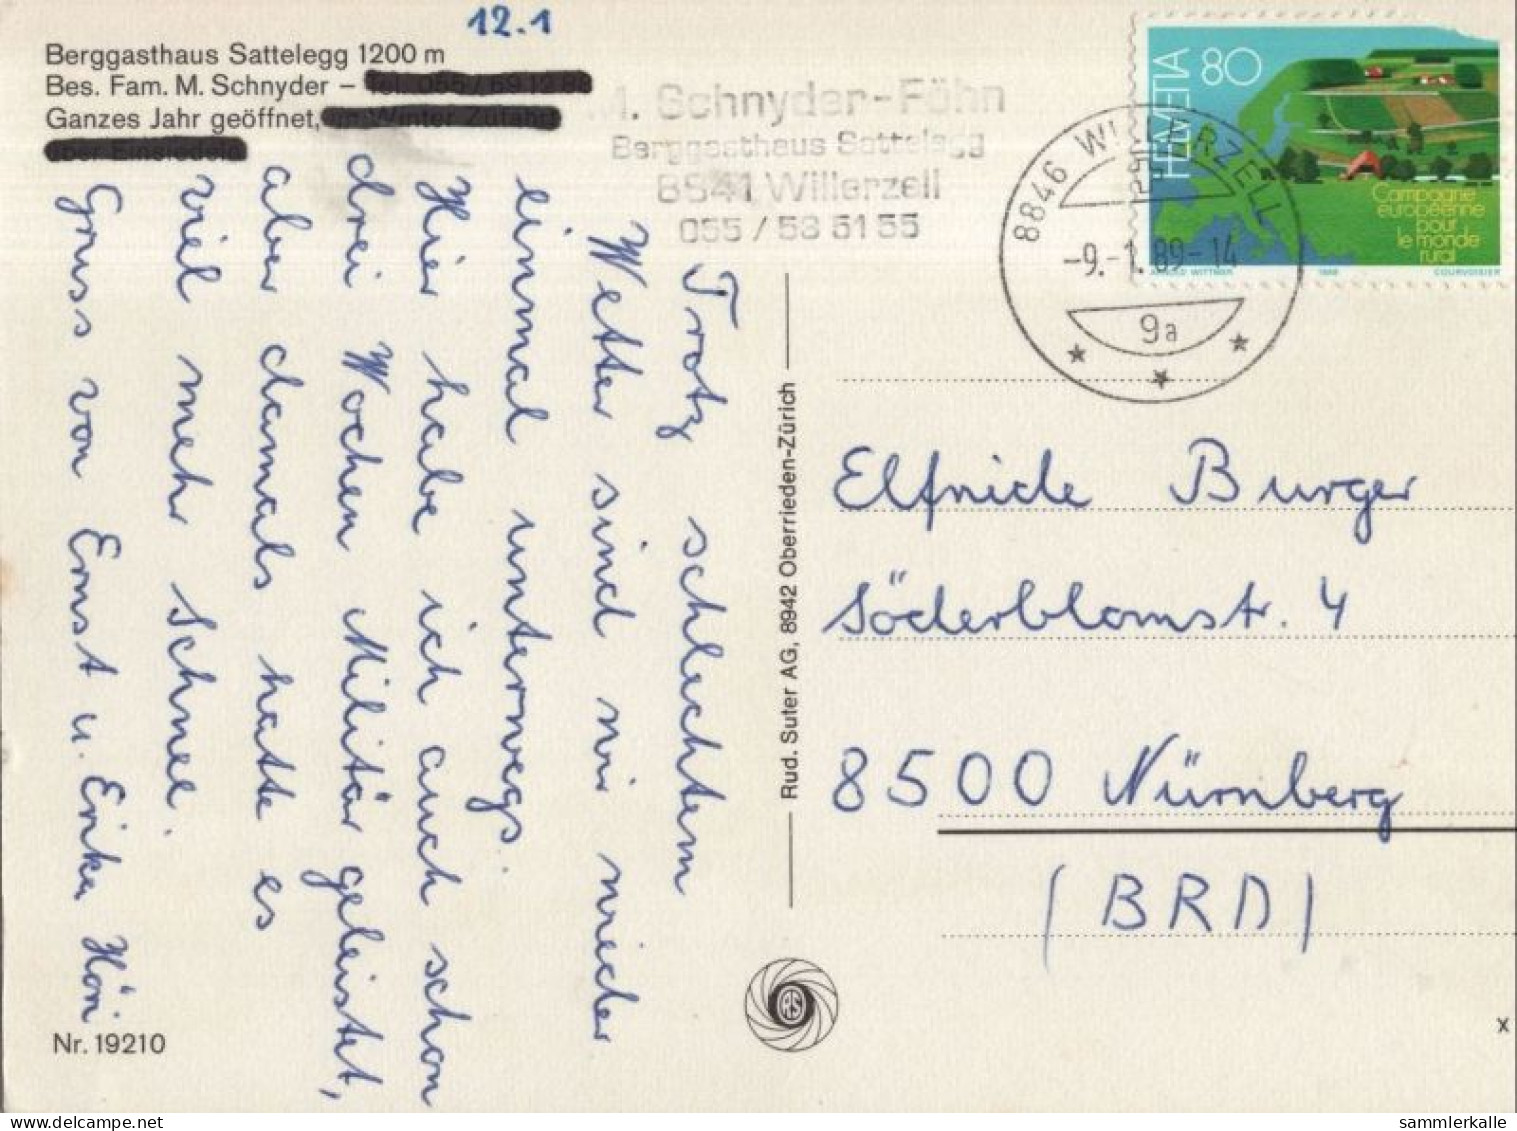 12.1
Berggasthaus Sattelegg 1200 m
Bes. Fam. M. Schnyder – Tel. 055/69 12 88
Ganzes Jahr geöffnet, im Winter Zufahrt
über Einsiedeln
M. Schnyder-Föhn
Berggasthaus Sattelegg
8841 Willerzell
055 / 53 51 55
HELVETIA 80
Campagne
européenne
pour
le monde
rural
WITTMER 1988 COURVOISIER
8846 WILLERZELL
-9.-1.89-14
9a
Trotz schlechtem
Wetter sind wir wieder
einmal unterwegs.
Hier habe ich auch schon
drei Wochen Militär geleistet,
aber damals hatte es
viel mehr Schnee.
Gruss von Ernst u. Erika
Rud. Suter AG, 8942 Oberrieden-Zürich
RS
Elfriede Burger
Söderblomstr. 4
8500 Nürnberg
(BRD)
Nr. 19210
x
sammlerkalle
delcampe.net